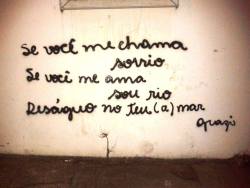 Se você me chama
sorrio
Se você me ama
sou rio
Deságuo no teu (a) mar
Grazi